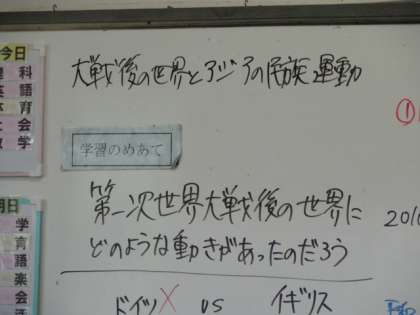 今日
理科
英語
体育
社会
数学
大戦後の世界とアジアの民族運動
①
学習のめあて
第一次世界大戦後の世界に
どのような動きがあったのだろう
明日
学
育
語
楽
会
ドイツ× VS イギリス